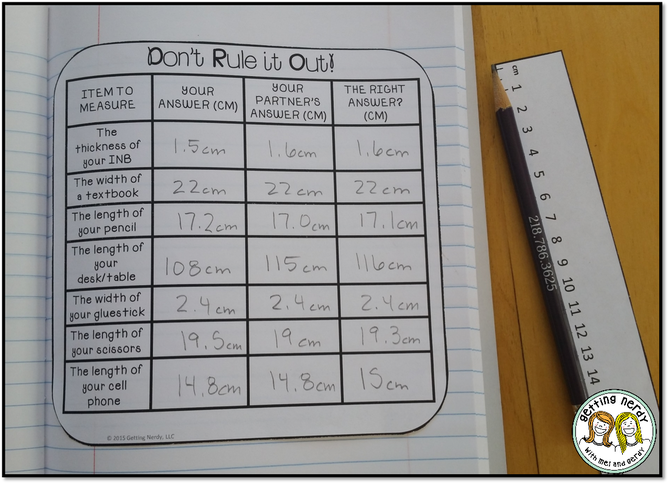 Don't Rule it Out!
ITEM TO MEASURE | YOUR ANSWER (CM) | YOUR PARTNER'S ANSWER (CM) | THE RIGHT ANSWER? (CM)
The thickness of your INB | 1.5cm | 1.6cm | 1.6cm
The width of a textbook | 22cm | 22cm | 22cm
The length of your pencil | 17.2cm | 17.0cm | 17.1cm
The length of your desk/table | 108cm | 115cm | 116cm
The width of your gluestick | 2.4cm | 2.4cm | 2.4cm
The length of your scissors | 19.5cm | 19cm | 19.3cm
The length of your cell phone | 14.8cm | 14.8cm | 15cm
© 2015 Getting Nerdy, LLC
cm 1 2 3 4 5 6 7 8 9 10 11 12 13 14
218.786.3625
getting nerdy
with mel and gerdy